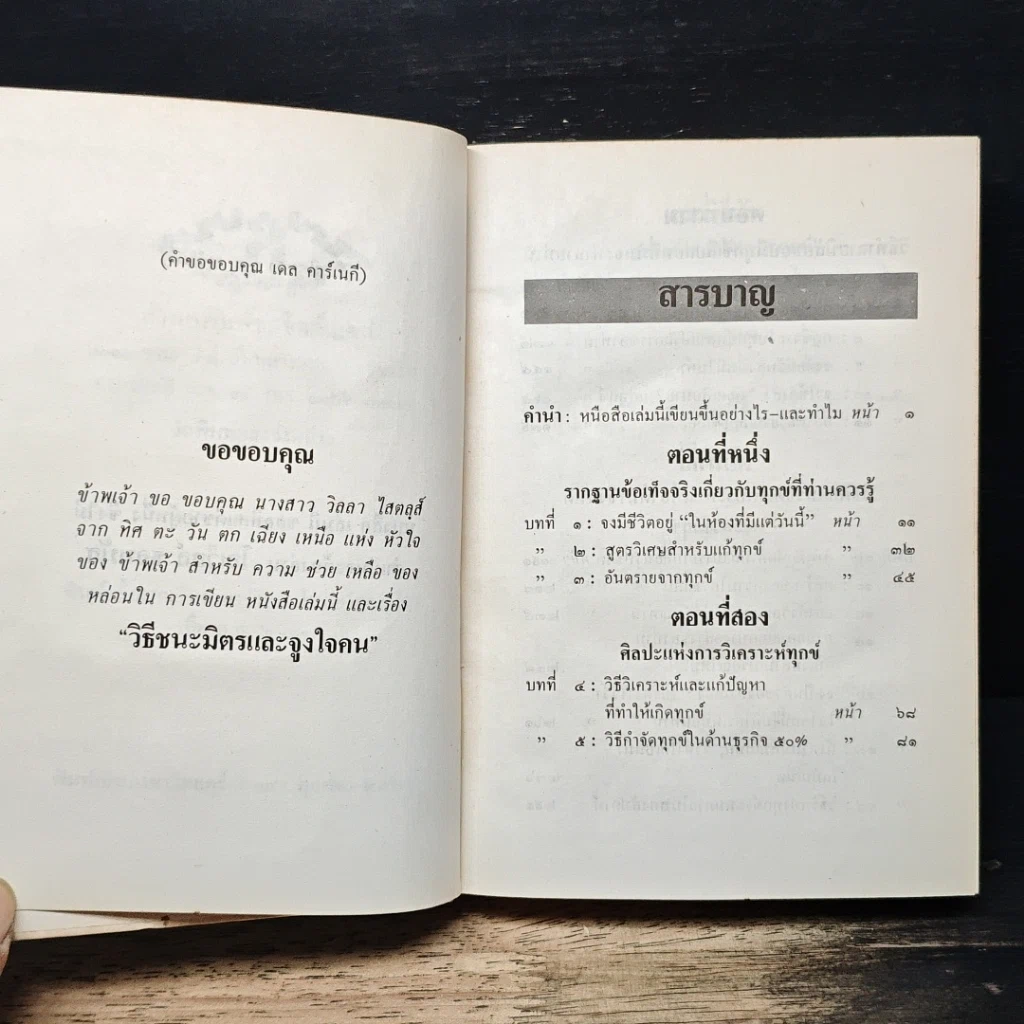 (คำขอขอบคุณ เดล คาร์เนกี)
ขอขอบคุณ
ข้าพเจ้า ขอ ขอบคุณ นางสาว วิลลา ไสตลุส์
จาก ทิศ ตะ วัน ตก เฉียง เหนือ แห่ง หัวใจ
ของ ข้าพเจ้า สำหรับ ความ ช่วย เหลือ ของ
หล่อนใน การเขียน หนังสือเล่มนี้ และเรื่อง
“วิธีชนะมิตรและจูงใจคน”
สารบาญ
คำนำ : หนือสือเล่มนี้เขียนขึ้นอย่างไร–และทำไม หน้า ๑
ตอนที่หนึ่ง
รากฐานข้อเท็จจริงเกี่ยวกับทุกข์ที่ท่านควรรู้
บทที่ ๑ : จงมีชีวิตอยู่ “ในห้องที่มีแต่วันนี้” หน้า ๑๑
” ๒ : สูตรวิเศษสำหรับแก้ทุกข์ ” ๓๒
” ๓ : อันตรายจากทุกข์ ” ๔๕
ตอนที่สอง
ศิลปะแห่งการวิเคราะห์ทุกข์
บทที่ ๔ : วิธีวิเคราะห์และแก้ปัญหา
ที่ทำให้เกิดทุกข์ หน้า ๖๘
” ๕ : วิธีกำจัดทุกข์ในด้านธุรกิจ ๕๐% ” ๘๑